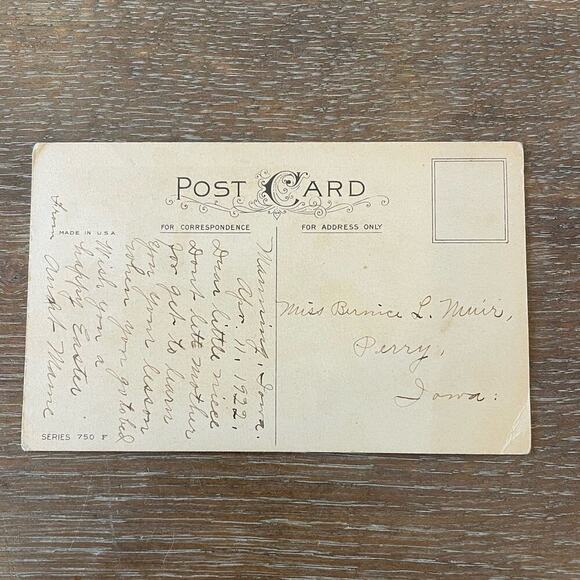 POST CARD
FOR CORRESPONDENCE
FOR ADDRESS ONLY
MADE IN U.S.A
Manning, Iowa.
Apr. 11, 1922,
Dear little niece
Dont lete mother
for get to learn
you your lesson
when you go to bed
Wish you a
happy Easter.
From Aunt Mame
Miss Bernice L. Muir,
Perry,
Iowa:
SERIES 750 F